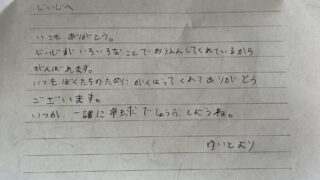 じいじへ
いつも ありがとう。
じいじが いろいろなことで おうえんしてくれているから
がんばれます。
いつも ぼくたちのために がんばってくれて ありがとう
ございます。
いつか、一緒に 卓球で しょうぶ しようね。
ゆいと より